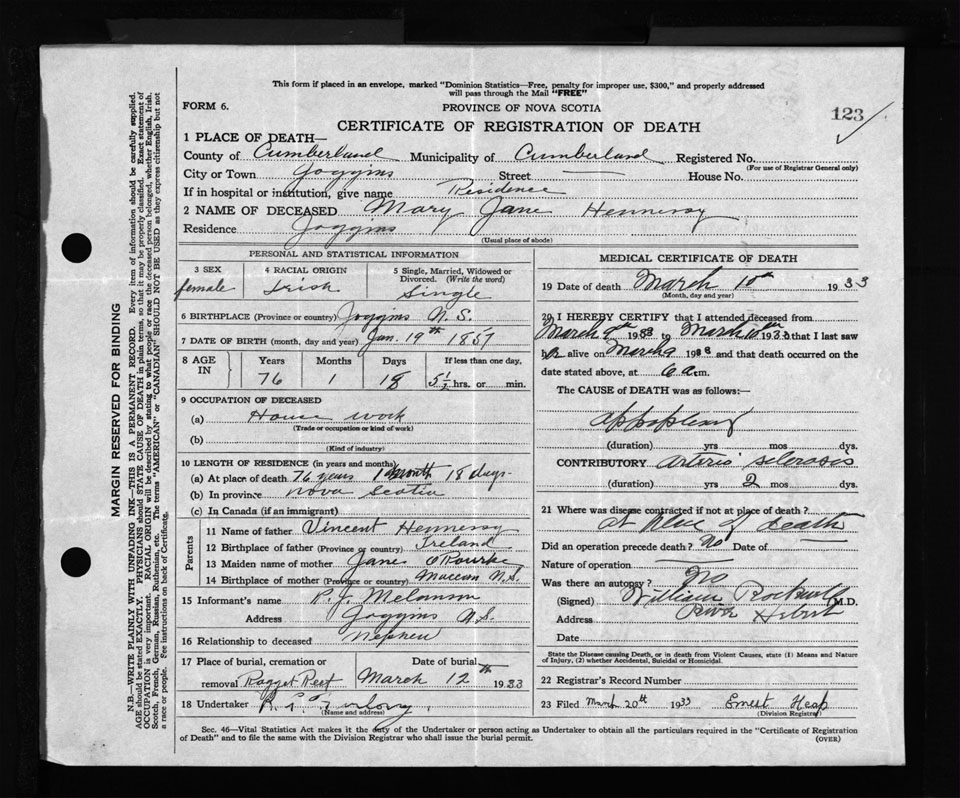 This form if placed in an envelope, marked "Dominion Statistics—Free, penalty for improper use, $300," and properly addressed
will pass through the Mail "FREE"
FORM 6.
PROVINCE OF NOVA SCOTIA
123
CERTIFICATE OF REGISTRATION OF DEATH
1 PLACE OF DEATH—
County of Cumberland Municipality of Cumberland Registered No.
(For use of Registrar General only)
City or Town Joggins Street — House No.
If in hospital or institution, give name Residence
2 NAME OF DECEASED Mary Jane Hennessy
Residence Joggins
(Usual place of abode)
PERSONAL AND STATISTICAL INFORMATION
3 SEX 4 RACIAL ORIGIN 5 Single, Married, Widowed or
Divorced. (Write the word)
female Irish Single
6 BIRTHPLACE (Province or country) Joggins N.S.
7 DATE OF BIRTH (month, day and year) Jan. 19th 1857
8 AGE IN Years Months Days If less than one day,
76 1 18 5½ hrs. or min.
9 OCCUPATION OF DECEASED
(a) House work
(Trade or occupation or kind of work)
(b)
(Kind of industry)
10 LENGTH OF RESIDENCE (in years and months)
(a) At place of death 76 years 1 month 18 days
(b) In province Nova Scotia
(c) In Canada (if an immigrant)
Parents
11 Name of father Vincent Hennessy
12 Birthplace of father (Province or country) Ireland
13 Maiden name of mother Jane O'Rourke
14 Birthplace of mother (Province or country) Maccan N.S.
15 Informant's name P. J. Melanson
Address Joggins N.S.
16 Relationship to deceased Nephew
17 Place of burial, cremation or Date of burial
removal Ragget Reef March 12th 1933
18 Undertaker
(Name and address)
MEDICAL CERTIFICATE OF DEATH
19 Date of death March 10th 1933
(Month, day and year)
20 I HEREBY CERTIFY that I attended deceased from
March 9th 1933 to March 10th 1933 that I last saw
her alive on March 9 1933 and that death occurred on
date stated above, at 6 a.m.
The CAUSE OF DEATH was as follows:—
apoplexy
(duration) yrs mos dys.
CONTRIBUTORY arterio sclerosis
(duration) 2 yrs mos dys.
21 Where was disease contracted if not at place of death?
at place of death
Did an operation precede death? No Date of —
Nature of operation —
Was there an autopsy? No
(Signed) William Rockwell M.D.
Address River Hebert
Date
State the Disease causing Death, or in death from Violent Causes, state (1) Means and Nature
of Injury, (2) whether Accidental, Suicidal or Homicidal.
22 Registrar's Record Number
23 Filed March 20th 1933 Ernest Heap
(Division Registrar)
Sec. 46—Vital Statistics Act makes it the duty of the Undertaker or person acting as Undertaker to obtain all the particulars required in the "Certificate of Registration
of Death" and to file the same with the Division Registrar who shall issue the burial permit. (OVER)
MARGIN RESERVED FOR BINDING
N.B.—WRITE PLAINLY WITH UNFADING INK—THIS IS A PERMANENT RECORD. Every item of information should be carefully supplied.
AGE should be stated EXACTLY. PHYSICIANS should STATE CAUSE OF DEATH in plain terms, so that it may be properly classified. Exact statement of
OCCUPATION is very important. RACIAL ORIGIN will be described by stating to what people or race the deceased person belonged, whether English, Irish,
Scotch, French, German, Russian, Ruthenian, etc. The terms "AMERICAN" or "CANADIAN" SHOULD NOT BE USED as they express citizenship but not
a race or people. See instructions on back of Certificate.